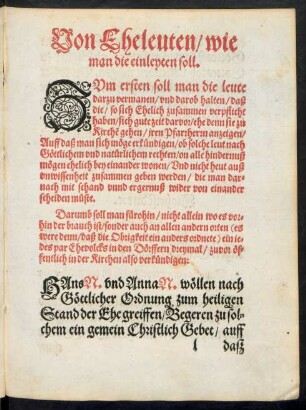 Von Eheleuten/ wie
man die einleyten soll.
ZVm ersten soll man die leute
darzu vermanen/ vnd darob halten/ daß
die/ so sich Ehelich zusammen verpflicht
haben/ sich gute zeit darvor/ ehe denn sie zu
Kirchē gehen/ jren Pfarrherrn anzeigen/
Auff daß man sich möge erkündigen/ ob solche leut nach
Göttlichem vnd natürlichem rechten/ on alle hindernuß
mögen ehelich bey einander wonen/ Vnd nicht heut auß
vnwissenheit zusammen geben werden/ die man dar-
nach mit schand vnnd ergernuß wider von einander
scheiden müste.
Darumb soll man fürohin/ nicht allein wo es vor-
hin der brauch ist/ sonder auch an allen andern orten (es
were denn/ daß die Obrigkeit ein anders ordnete) ein je-
des par Ehevolcks in den Dörffern dreymal/ zuvor öf-
fentlich in der Kirchen also verkündigen:
HAns N. vnd Anna N. wöllen nach
Göttlicher Ordnung zum heiligen
Stand der Ehe greiffen/ Begeren zu sol-
chem ein gemein Christlich Gebet/ auff
l daß